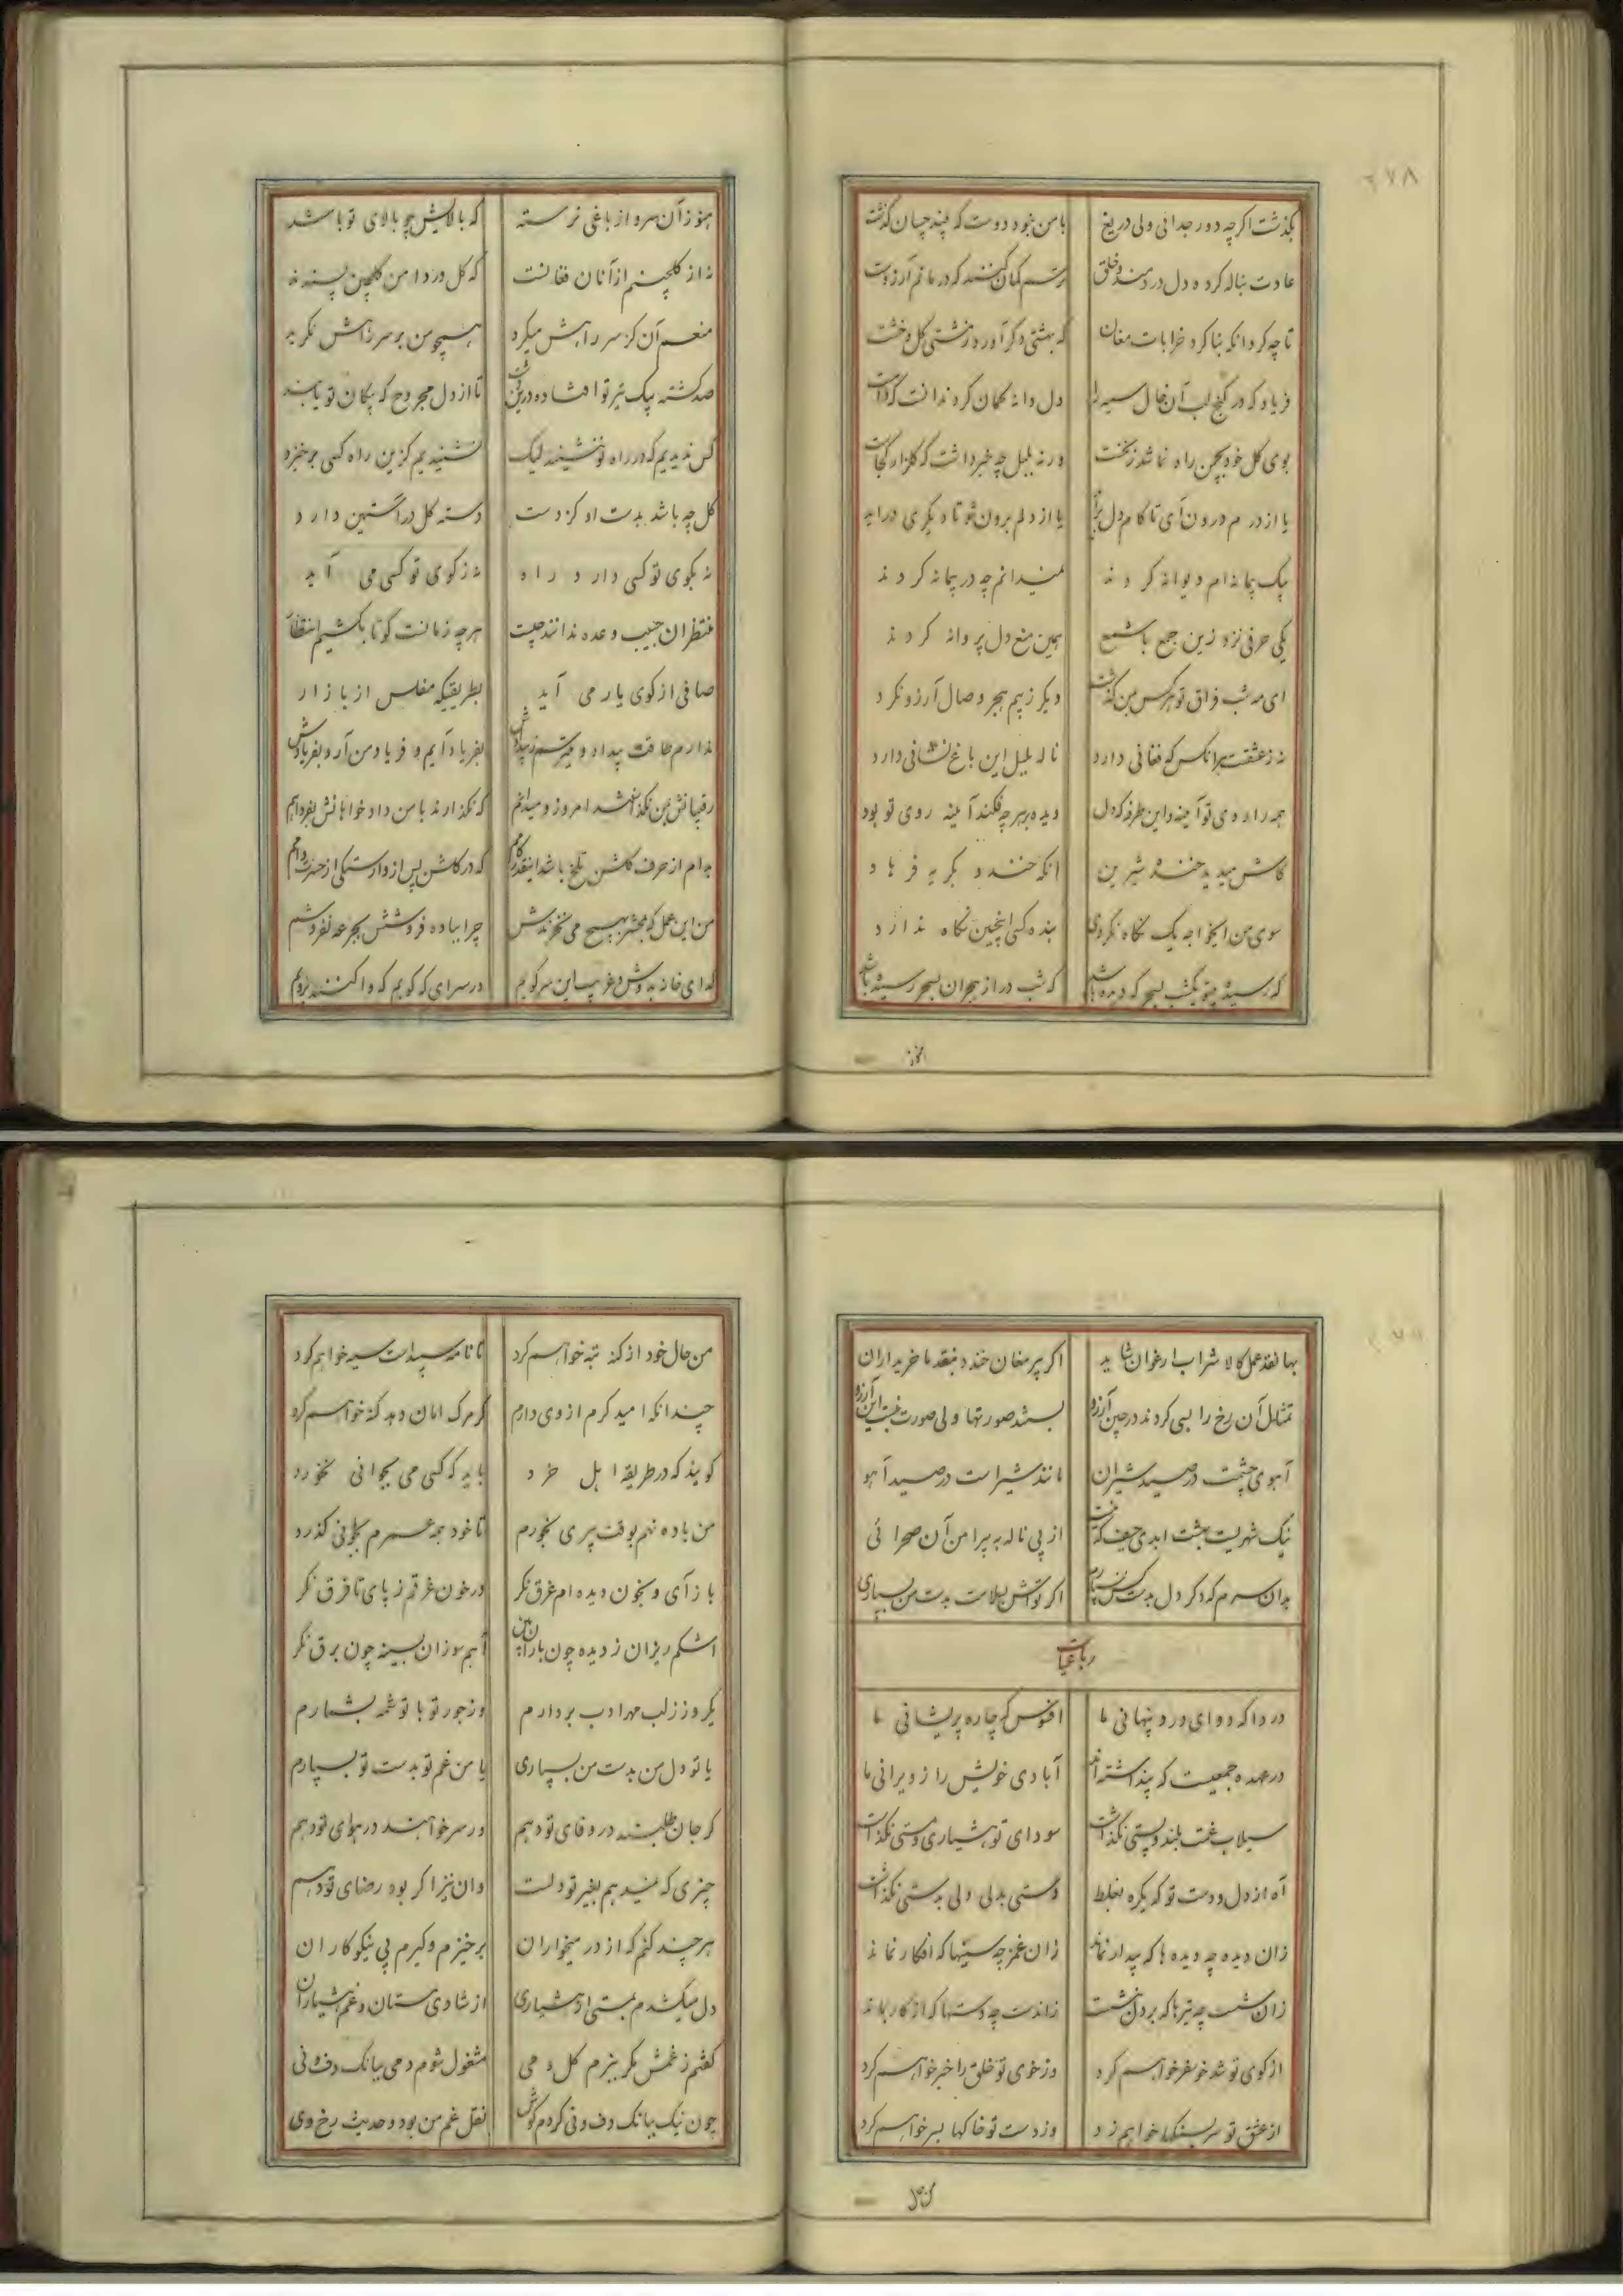 ۲۷۸
بگذشت اگرچه دور جدائی ولی دریغ با من نبود دوست که بیند چسان گذشت
عادت بناله کرده دل دردمند و خلق ترسم گمان کنند که درمانم آرزوست
تا چه کرد آنکه بنا کرد خرابات مغان که بهشتی دگر آورد ز مشتی گل و خشت
فریاد که در کنج لب آن خال سیه را دل دانه گمان کرد ندانست که دامست
بوی گل خود بچمن راه نما شد ز نخست ورنه بلبل چه خبر داشت که گلزار کجاست
یا از درم درون آی تا کام دل برآید یا از دلم برون شو تا دیگری درآید
بیک پیمانه ام دیوانه کردند نمیدانم چه در پیمانه کردند
یکی حرفی نزد زین جمع با شمع همین منع دل پروانه کردند
ای مه شب فراق تو هرکس چو من گذاشت دیگر ز بیم هجر وصال آرزو نکرد
نه ز عشقست هر آنکس که فغانی دارد ناله بلبل این باغ نشانی دارد
همه را روی تو آینه و این طرفه که دل دیده بر هر چه فکند آینه روی تو بود
کاش میدید خنده شیرین آنکه خندد بگریه فرهاد
سوی من ایخواجه یک نگاه نکردی بنده کسی اینچنین نگاه ندارد
که رسیده بتو یکشب بسحر که دیده باشد که شب دراز هجران بسحر رسیده باشد
هنوز
هنوز آن سرو از باغی نرسته که بالایش چو بالای تو باشد
نه از گلچینم از آنان فغانست که گل در دامن گلچین پسندند
منعم آن کز سر راهش میکرد همچو من بر سر راهش نگرید
صد کشته بیک تیر تو افتاده درین دشت تا از دل مجروح که پیکان تو یابند
کس ندیدیم که در راه تو ننشیند لیک نشنیدیم کزین راه کسی برخیزد
گل چه باشد بدست او کز دست دسته گل در آستین دارد
نه بکوی تو کسی دارد راه نه ز کوی تو کسی می آید
منتظران حبیب وعده ندانند چیست هرچه زمانست گو تا بکشیم انتظار
صافی از کوی یار می آید بطریقیکه مفلس از بازار
ندارم طاقت بیداد و میترسم ز بیدادش بفریاد آیم و فریاد من آرد بفریادش
رقیبانش بمن نگذاشتند امروز و میدانم که نگذارند با من دادخواهانش بفردا هم
بدام از حرف گلشن تلخ باشد اینقدر کامم که در گلشن پس از وارستگی از حسرت دامم
من این عمل که بمحشر بهیچ می نخرندش چرا بباده فروشش بجرعه نفروشم
گدای خانه بدوش و غریب این سر کویم در سرای که کوبم که وا کنند برویم
بها نقد عمل کالا شراب ارغوان شاید اگر پیر مغان خندد بنقد ما خریداران
تمثال آن رخ را بسی کردند در چین آرزو بستند صورتها ولی صورت نبست این آرزو
آهوی چشمت در صید شیران مانند شیر است در صید آهو
نیک شهریست بهشت ابدی حیف که نیست از پی ناله به پیرامن آن صحرائی
بدان سرم که دگر دل بدست کس نسپارم اگر تو اش بسلامت بدست من بسپاری
رباعیات
دردا که دوای درد پنهانی ما افسوس که چاره پریشانی ما
در عهده جمعیست که پنداشته اند آبادی خویش را ز ویرانی ما
سیلاب غمت بلند و پستی نگذاشت سودای تو هشیاری و مستی نگذاشت
آه از دل و دست تو که یکره بغلط دستی بدلی ولی بدستی نگذاشت
زان دیده چه دیده ها که بیدار نماند زان غمزه چه سینها که افکار نماند
زان شست چه تیرها که بر دل ننشست زاندست چه دستها که از کار نماند
از کوی تو شد خو سفر خواهم کرد وز خوی تو خلق را خبر خواهم کرد
از عشق تو سر بسنگها خواهم زد وز دست تو خاکها بسر خواهم کرد
من حال
من حال خود از گنه تبه خواهم کرد تا نامه سپید است سیه خواهم کرد
چندانکه امید کرم از وی دارم گر مرگ امان دهد گنه خواهم کرد
گویند که در طریقه اهل خرد باید که کسی می بجوانی نخورد
من باده نهم بوقت پیری بخورم تا خود همه عمرم بجوانی گذرد
باز آی و بخون دیده ام غرق نگر در خون غرقم ز پای تا فرق نگر
اشکم ریزان ز دیده چون باران بین آهم سوزان بسینه چون برق نگر
یکروز ز لب مهر ادب بردارم وز جور تو با تو شمه بشمارم
یا تو دل من بدست من بسپاری یا من غم تو بدست تو بسپارم
گر جان طلبند در وفای تو دهم ور سر خواهند در هوای تو دهم
چیزی که نمیدهم بغیر تو دلست وان نیز اگر بود رضای تو دهم
هرچند کنم که از در میخواران برخیزم و گیرم پی نیکوکاران
دل میکشدم بمستی از هشیاری از شادی مستان و غم هشیاران
گفتم ز غمش مگر ببزم گل و می مشغول شوم دمی ببانگ دف و نی
چون نیک ببانگ دف و نی کردم گوش نقل غم من بود و حدیث رخ وی